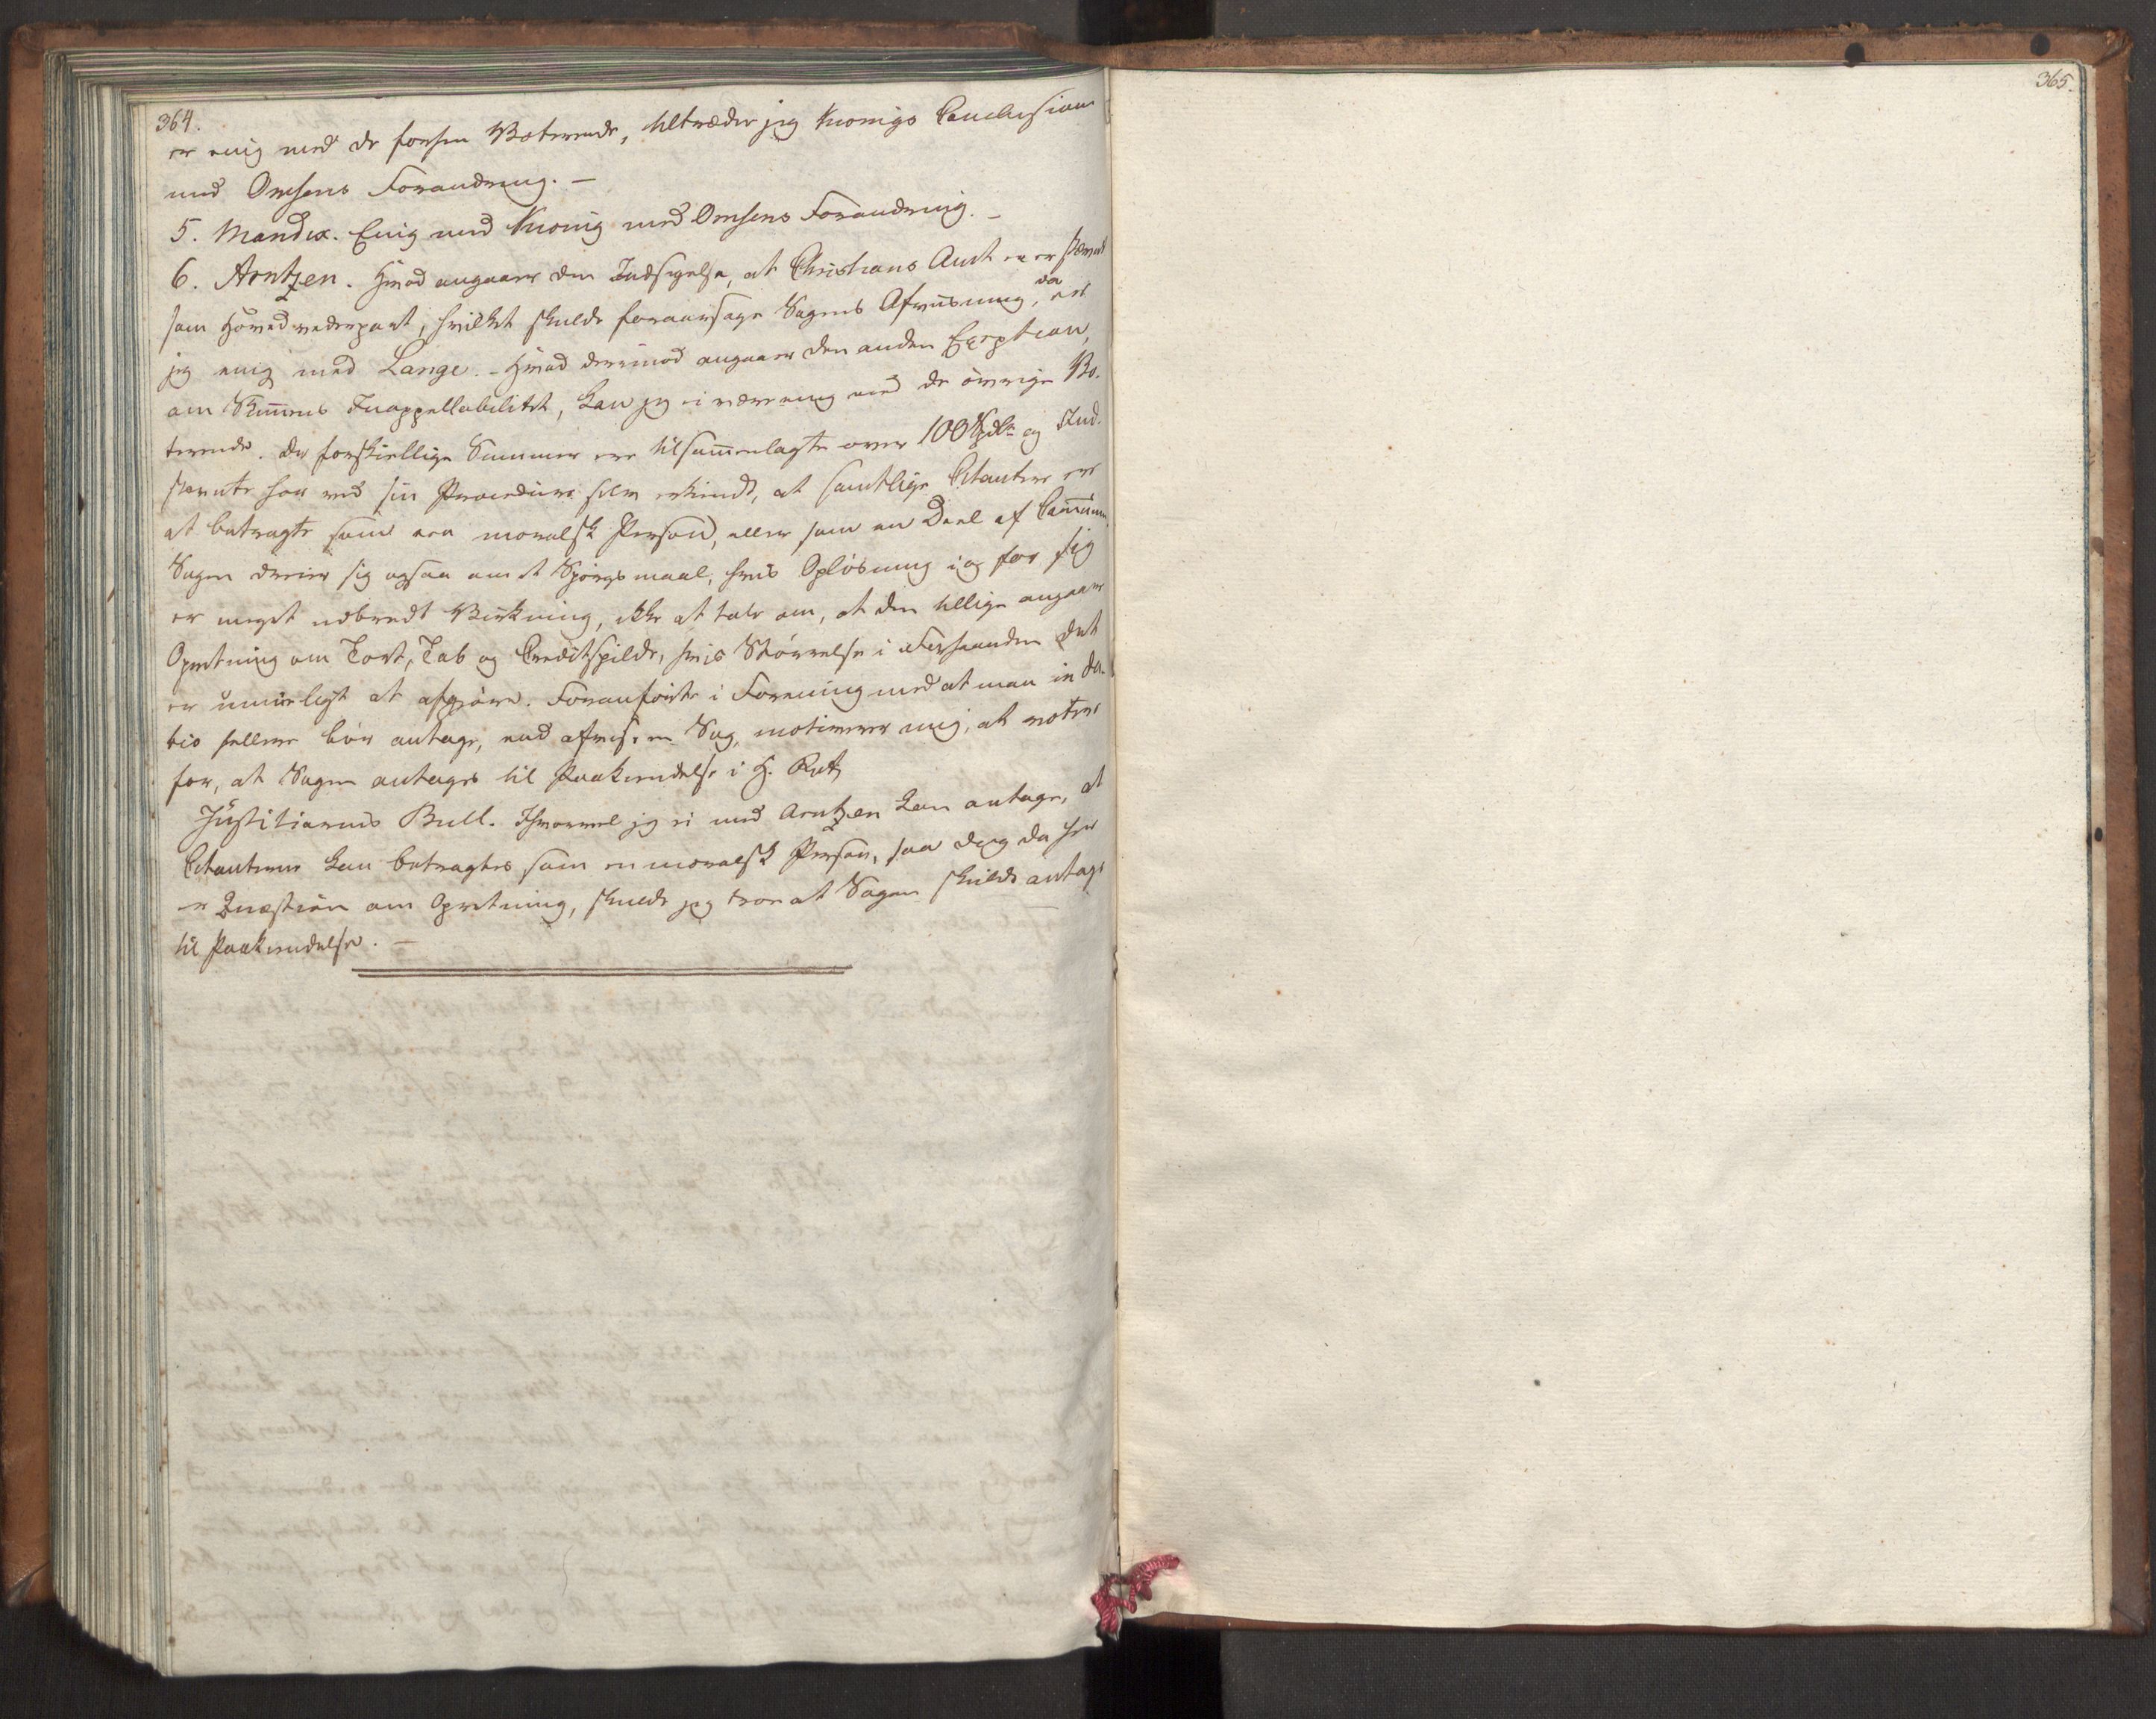 364.
er enig med de forhen Voterende, tiltræder jeg Kronigs Conclusion
med Omsens Forandring. —
5. Mandix. Enig med Kronig med Omsens Forandring. —
6. Arntzen. Hvad angaaer den Indsigelse, at Christians Aust er stævnet
som Hovedvederpart, hvilket skulde foraarsage Sagens Afviisning, da er
jeg enig med Lange. – Hvad derimod angaaer den anden Exeption,
om Summens Inappellabilitet, kan jeg ei være enig med de øvrige Vo-
terende. De forskiellige Summer ere tilsammenlagte over 100 Spdlr og Ind-
stevnte har ved sin Procedure selv erkiendt, at samtlige Citanter ere
at betragte som een moralsk Person, eller som en Deel af Commun.
Sagen dreier sig ogsaa om et Spørgsmaal, hvis Opløsning i og for sig
er meget udbredt Virkning, ikke at tale om, at den tillige angaaer
Opretning om Tort, Tab og Creditspilde, hvis Størrelse i Forhaanden det
er umueligt at afgjøre. Foranførte i Forening med at man in du-
bio hellere bør antage, end afvise en Sag, motiverer mig, at votere
for, at Sagen antages til Paakiendelse i H. Ret,
Justitiarius Bull. Ihvorvel jeg ei med Arntzen kan antage, at
Citanterne kan betragtes som en moralsk Person, saa dog da her
er Quæstion om Opretning, skulde jeg troe at Sagen skulde antages
til Paakiendelse. —
365.